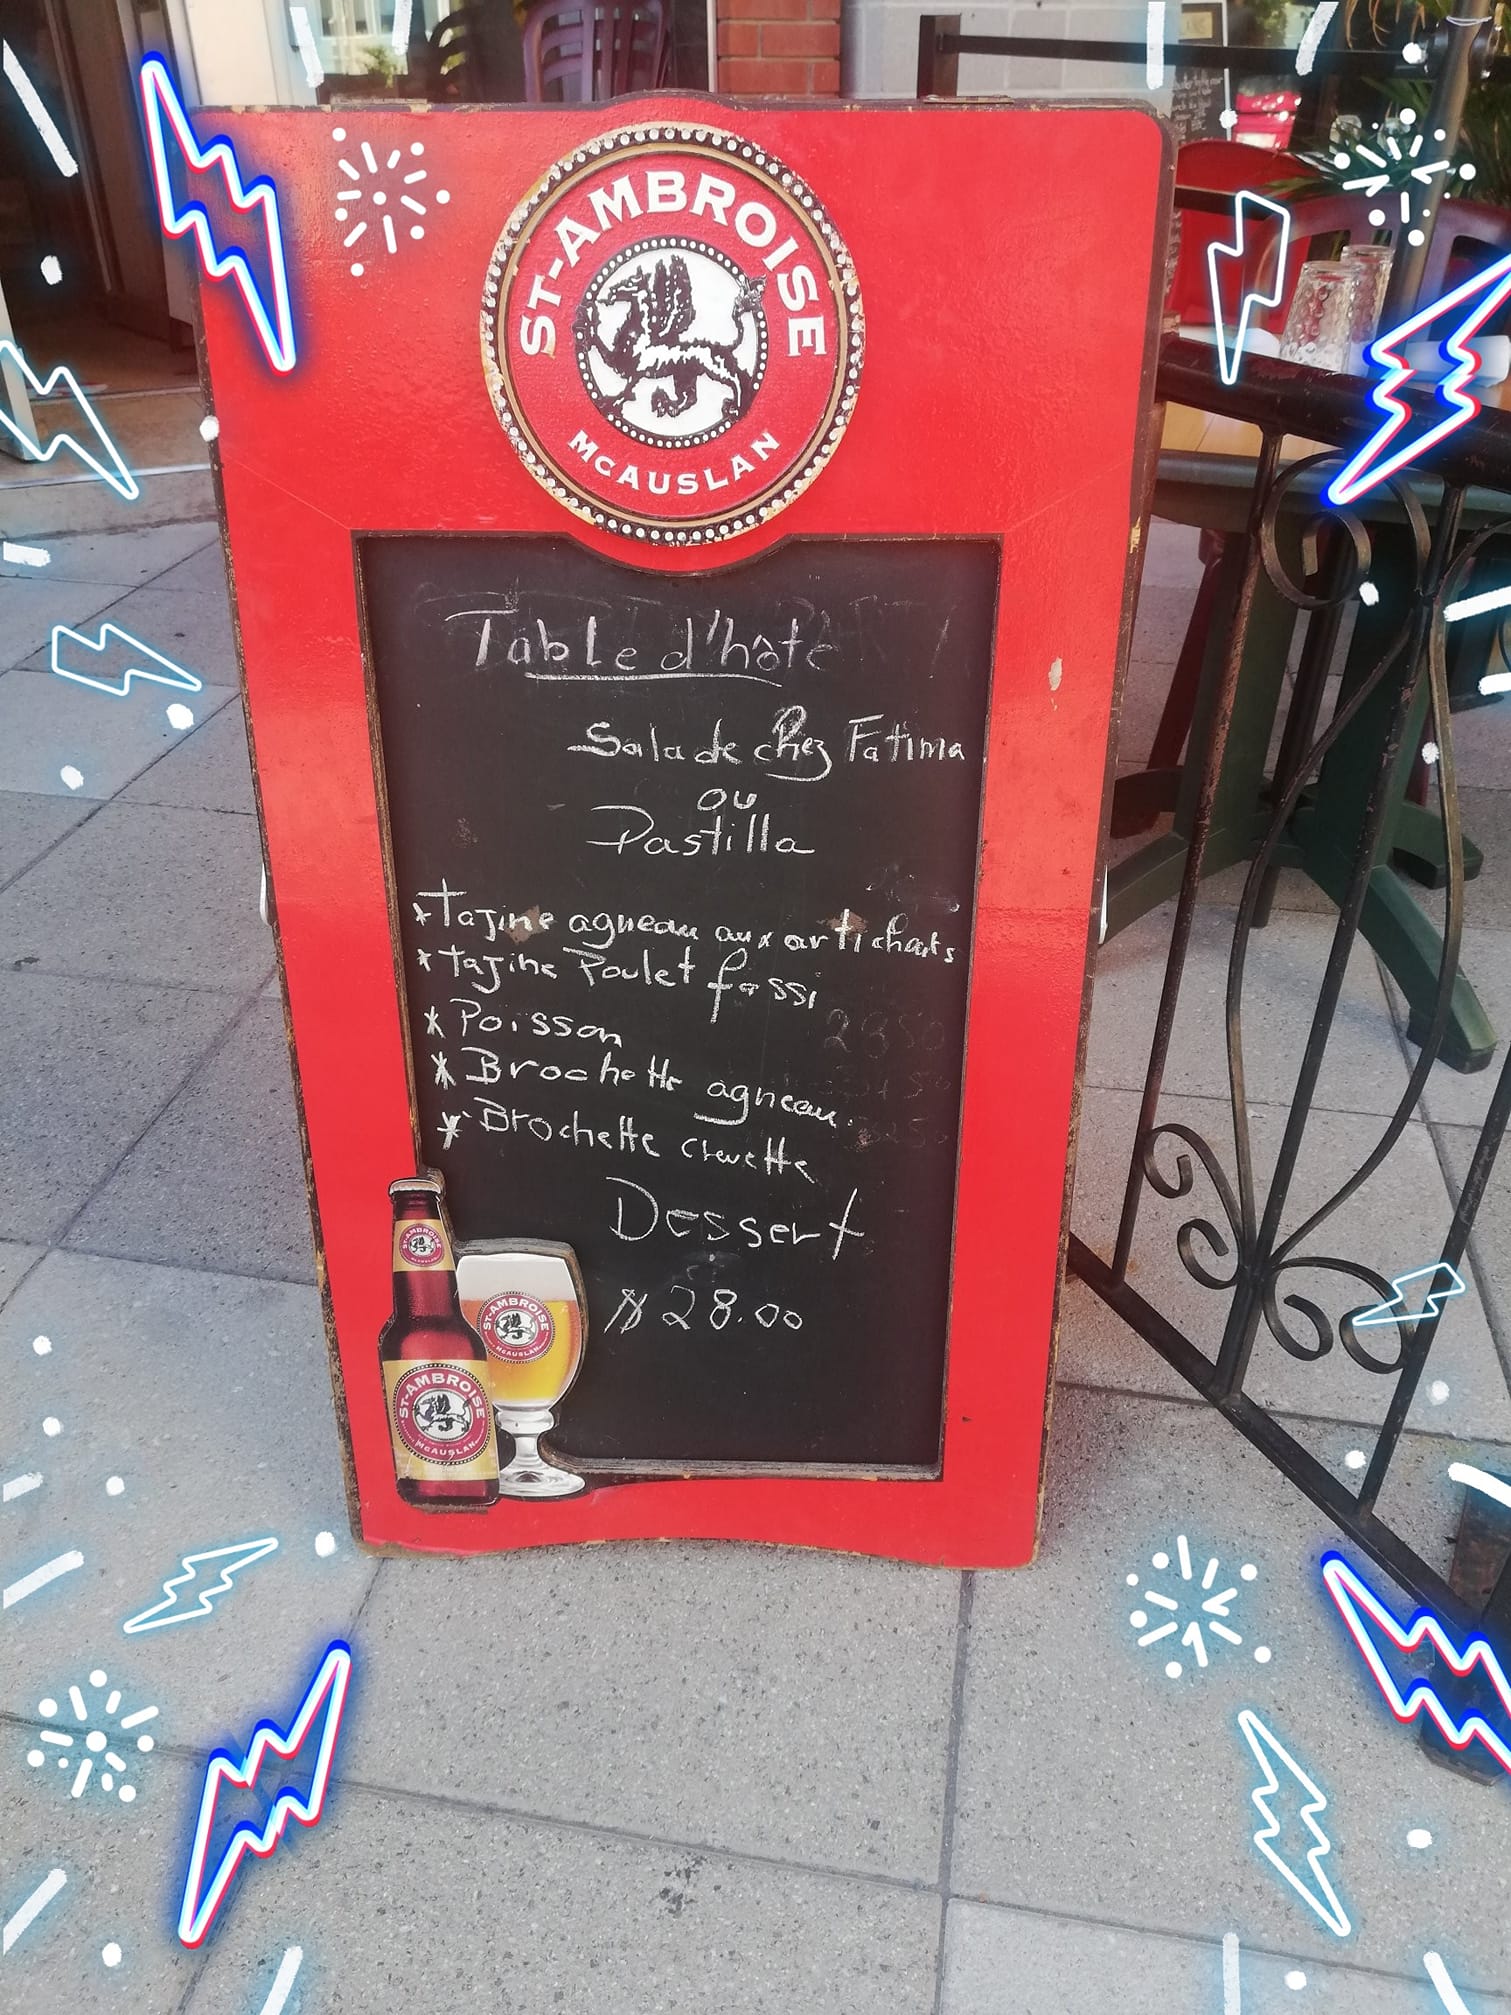 ST-AMBROISE
McAUSLAN
Table d'hôte
Salade chez Fatima
ou
Pastilla
*Tajine agneau aux artichauts
*tajine Poulet fassi
*Poisson
*Brochette agneau.
*Brochette crevette
Dessert
$28.00
ST-AMBROISE
ST-AMBROISE
McAUSLAN
ST-AMBROISE
McAUSLAN